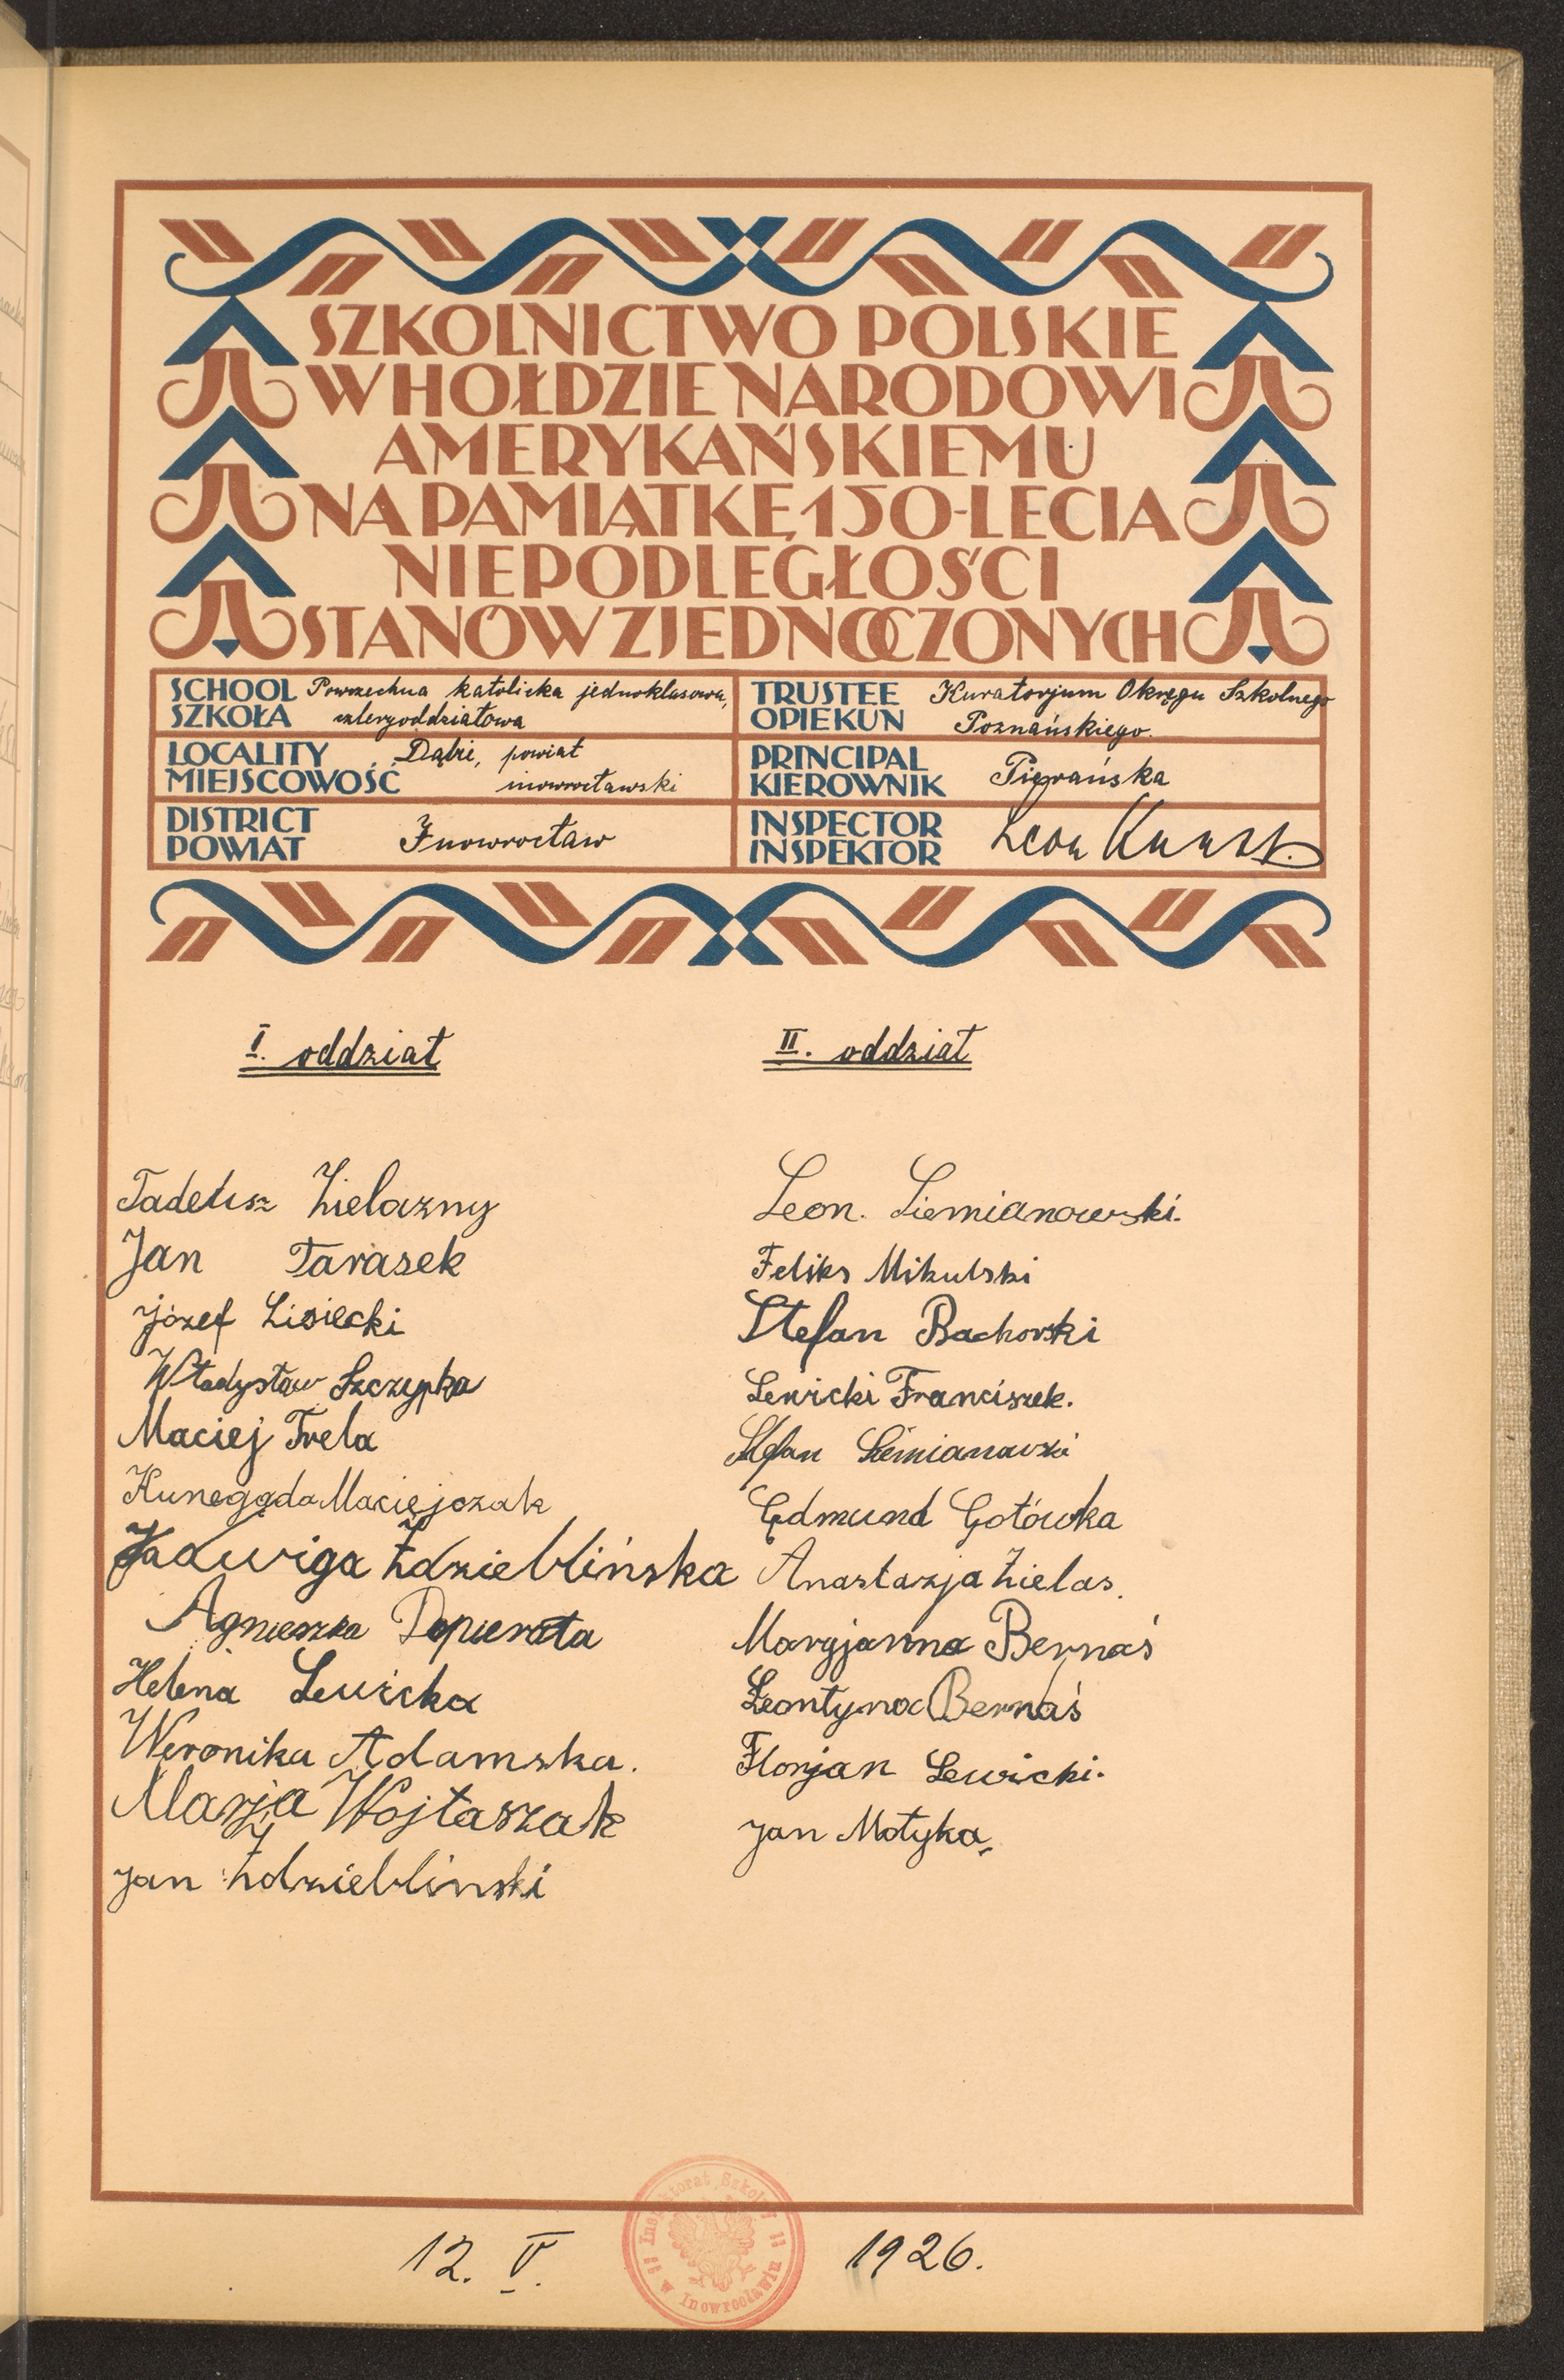 SZKOLNICTWO POLSKIE
W HOŁDZIE NARODOWI
AMERYKAŃSKIEMU
NA PAMIĄTKĘ 150-LECIA
NIEPODLEGŁOŚCI
STANÓW ZJEDNOCZONYCH
SCHOOL Powszechna katolicka jednoklasowa,
SZKOŁA czteryoddziałowa
TRUSTEE Kuratorjum Okręgu Szkolnego
OPIEKUN Poznańskiego.
LOCALITY Dąbie, powiat
MIEJSCOWOŚĆ inowrocławski
PRINCIPAL
KIEROWNIK Pigwańska
DISTRICT
POWIAT Inowrocław
INSPECTOR
INSPEKTOR Leon
I. oddział
II. oddział
Tadeusz Zielazny
Jan Tarasek
Józef Lisiecki
Władysław Szczypka
Maciej Trela
Kunegąda Maciejczak
Jadwiga Ździeblińska
Agnieszka Depierała
Helena Lewicka
Weronika Adamska.
Marja Wojtaszak
Jan Zdzieblinski
Leon. Siemianowski.
Feliks Mikulski
Stefan Bachorski
Lewicki Franciszek.
Stefan Siemianowski
Edmund Gotówka
Anastazja Zielas.
Maryjanna Bernaś
Leontyna Bernaś
Florjan Lewicki.
Jan Motyka.
12. V. 1926.
Inspektorat Szkolny
w Inowrocławiu